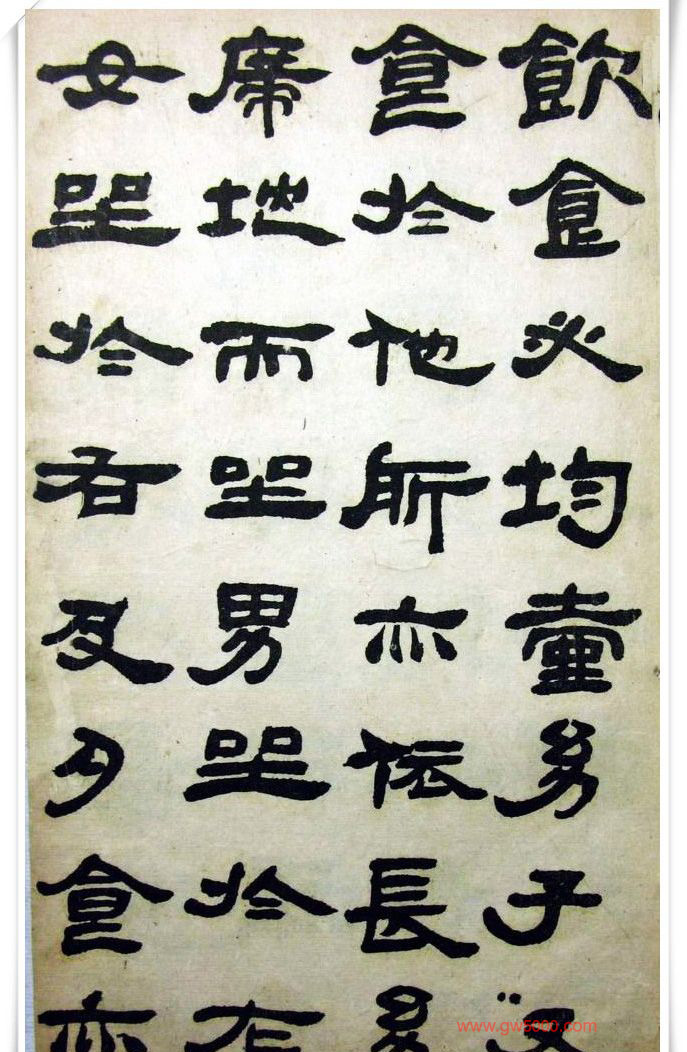 飲食必均壹幼子又
食於他所亦依長幼
席地而坐男坐於左
女坐於右及夕食亦